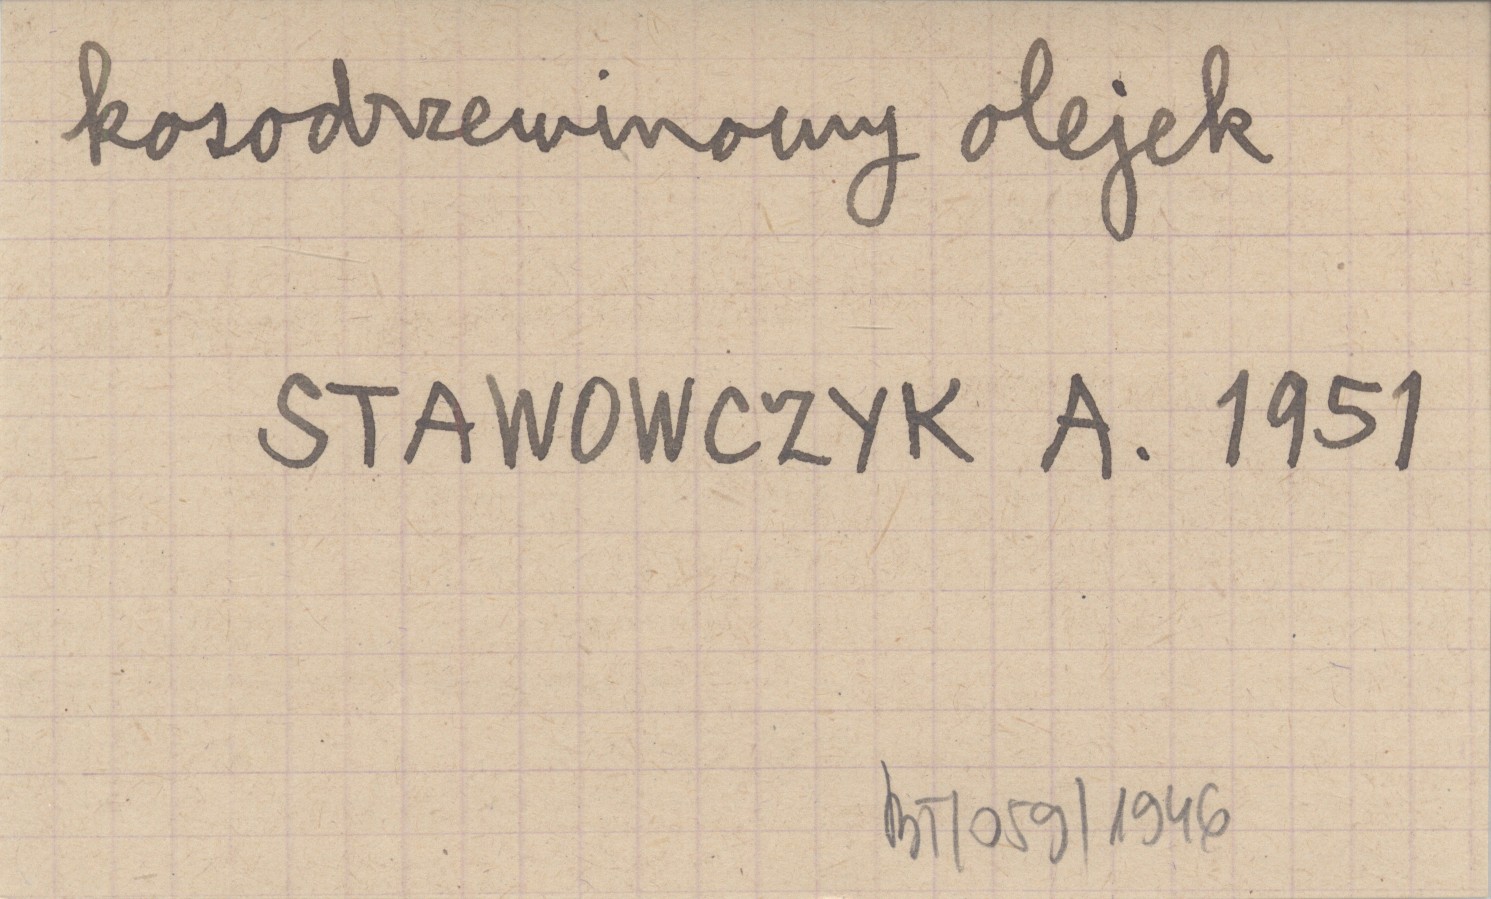 kosodrzewinowy olejek
STAWOWCZYK A. 1951
BT/059/1946